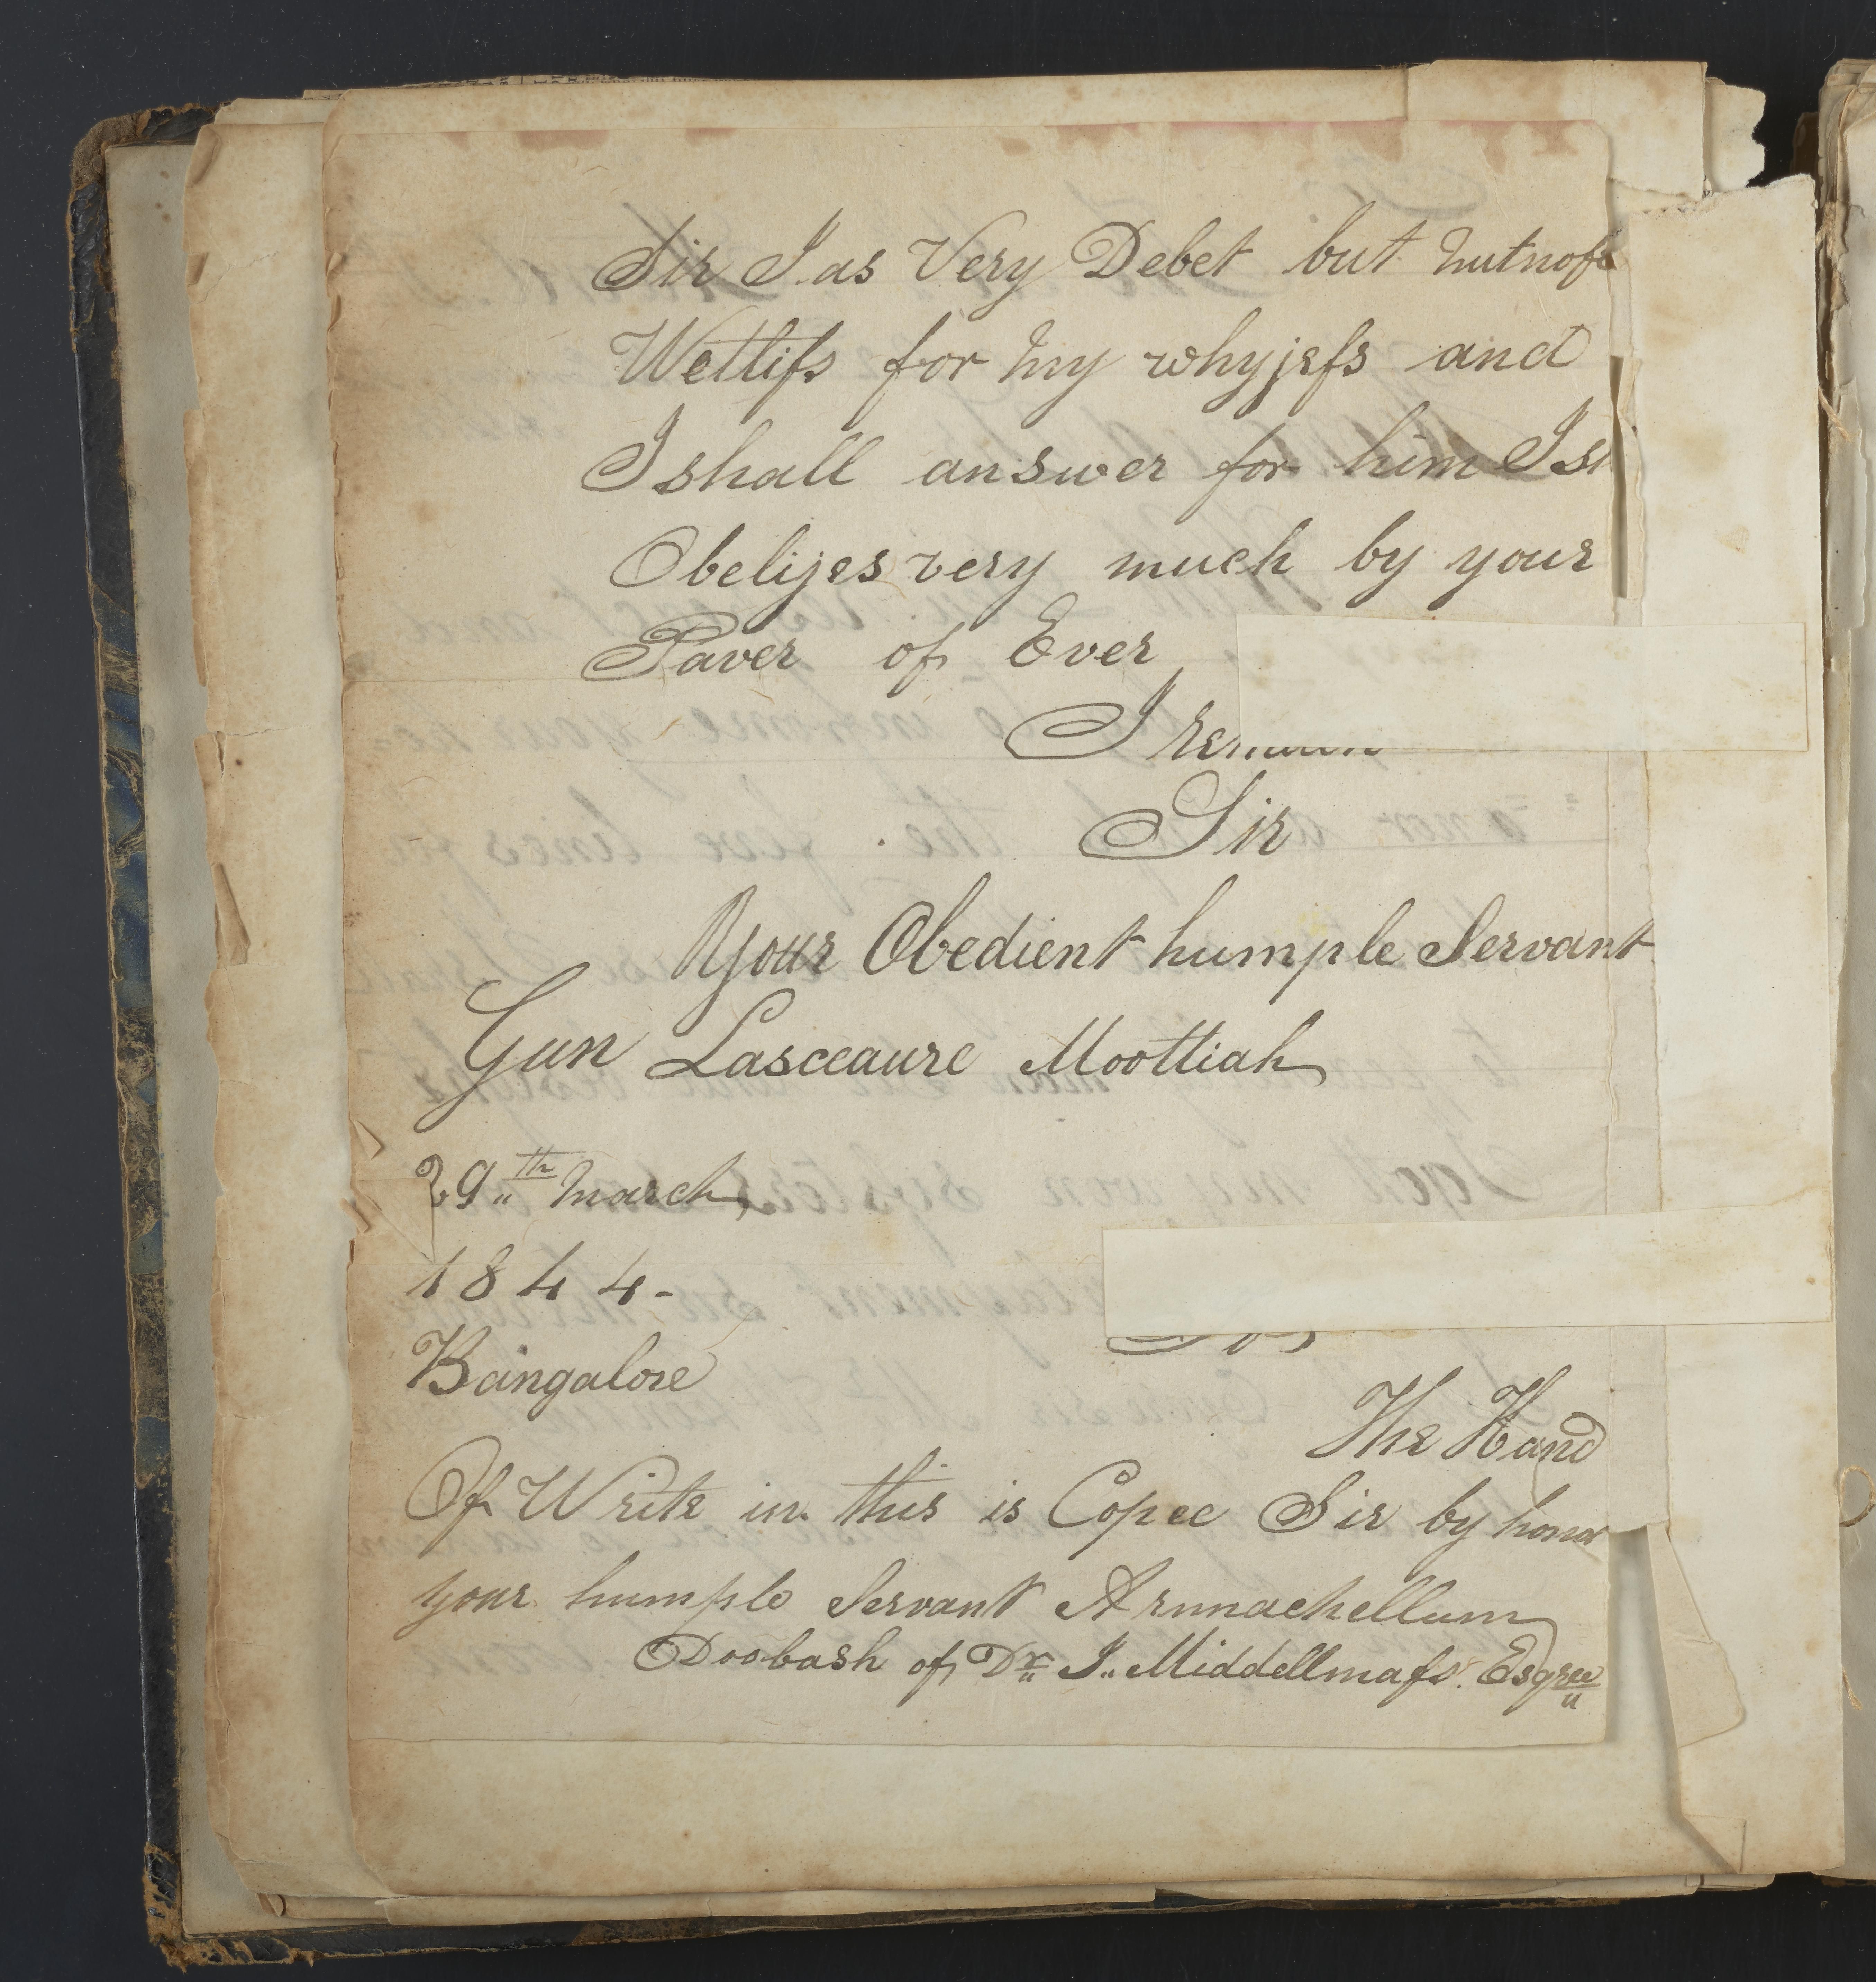 Sir I as Very Debet but
Wettifs for my whyjefs and
I shall answer for him I
Obelijes very much by your
Paver of Ever
I remain
Sir
Your Obedient humple Servant
Gun Lasceaure Moottiah
29th March
1844-
Bangalore
The Hand
Of Write in this is Copee Sir by honor
your humple Servant Arunachellum
Doobash of Dr J. Middellmafs Esqree